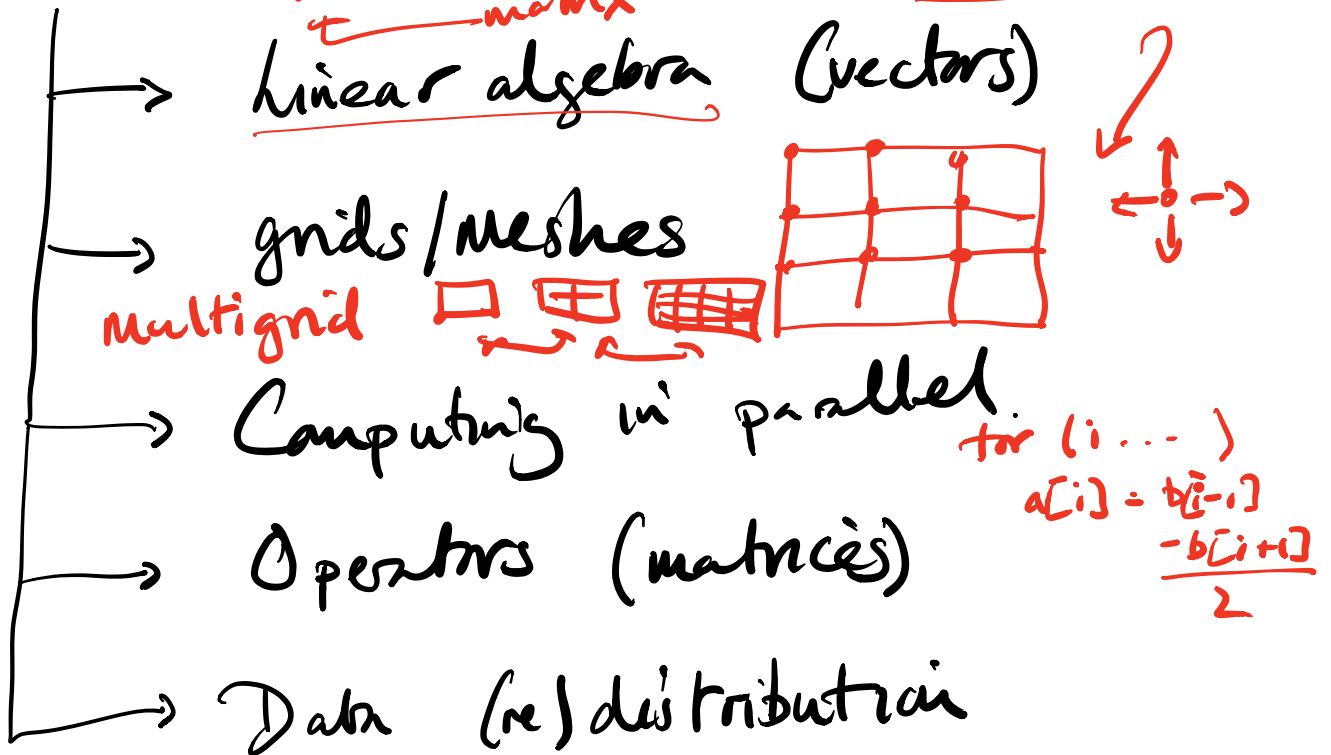 matrix
Linear algebra (vectors)
grids/Meshes
multigrid
Computing in parallel
for (i ... )
a[i] = b[i-1]
-b[i+1]
2
Operators (matrices)
Data (re)distribution